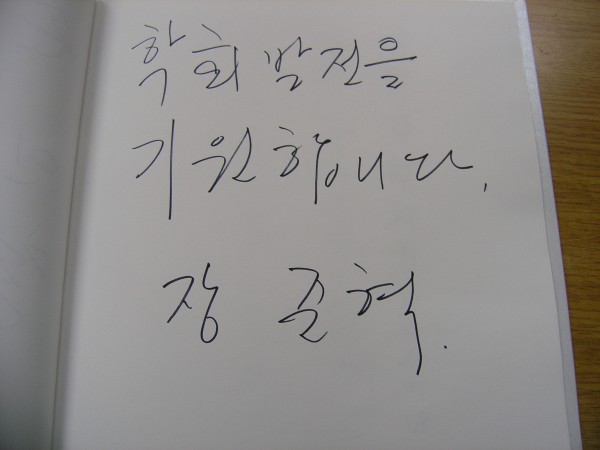 학회 발전을
기원합니다.
장준혁.